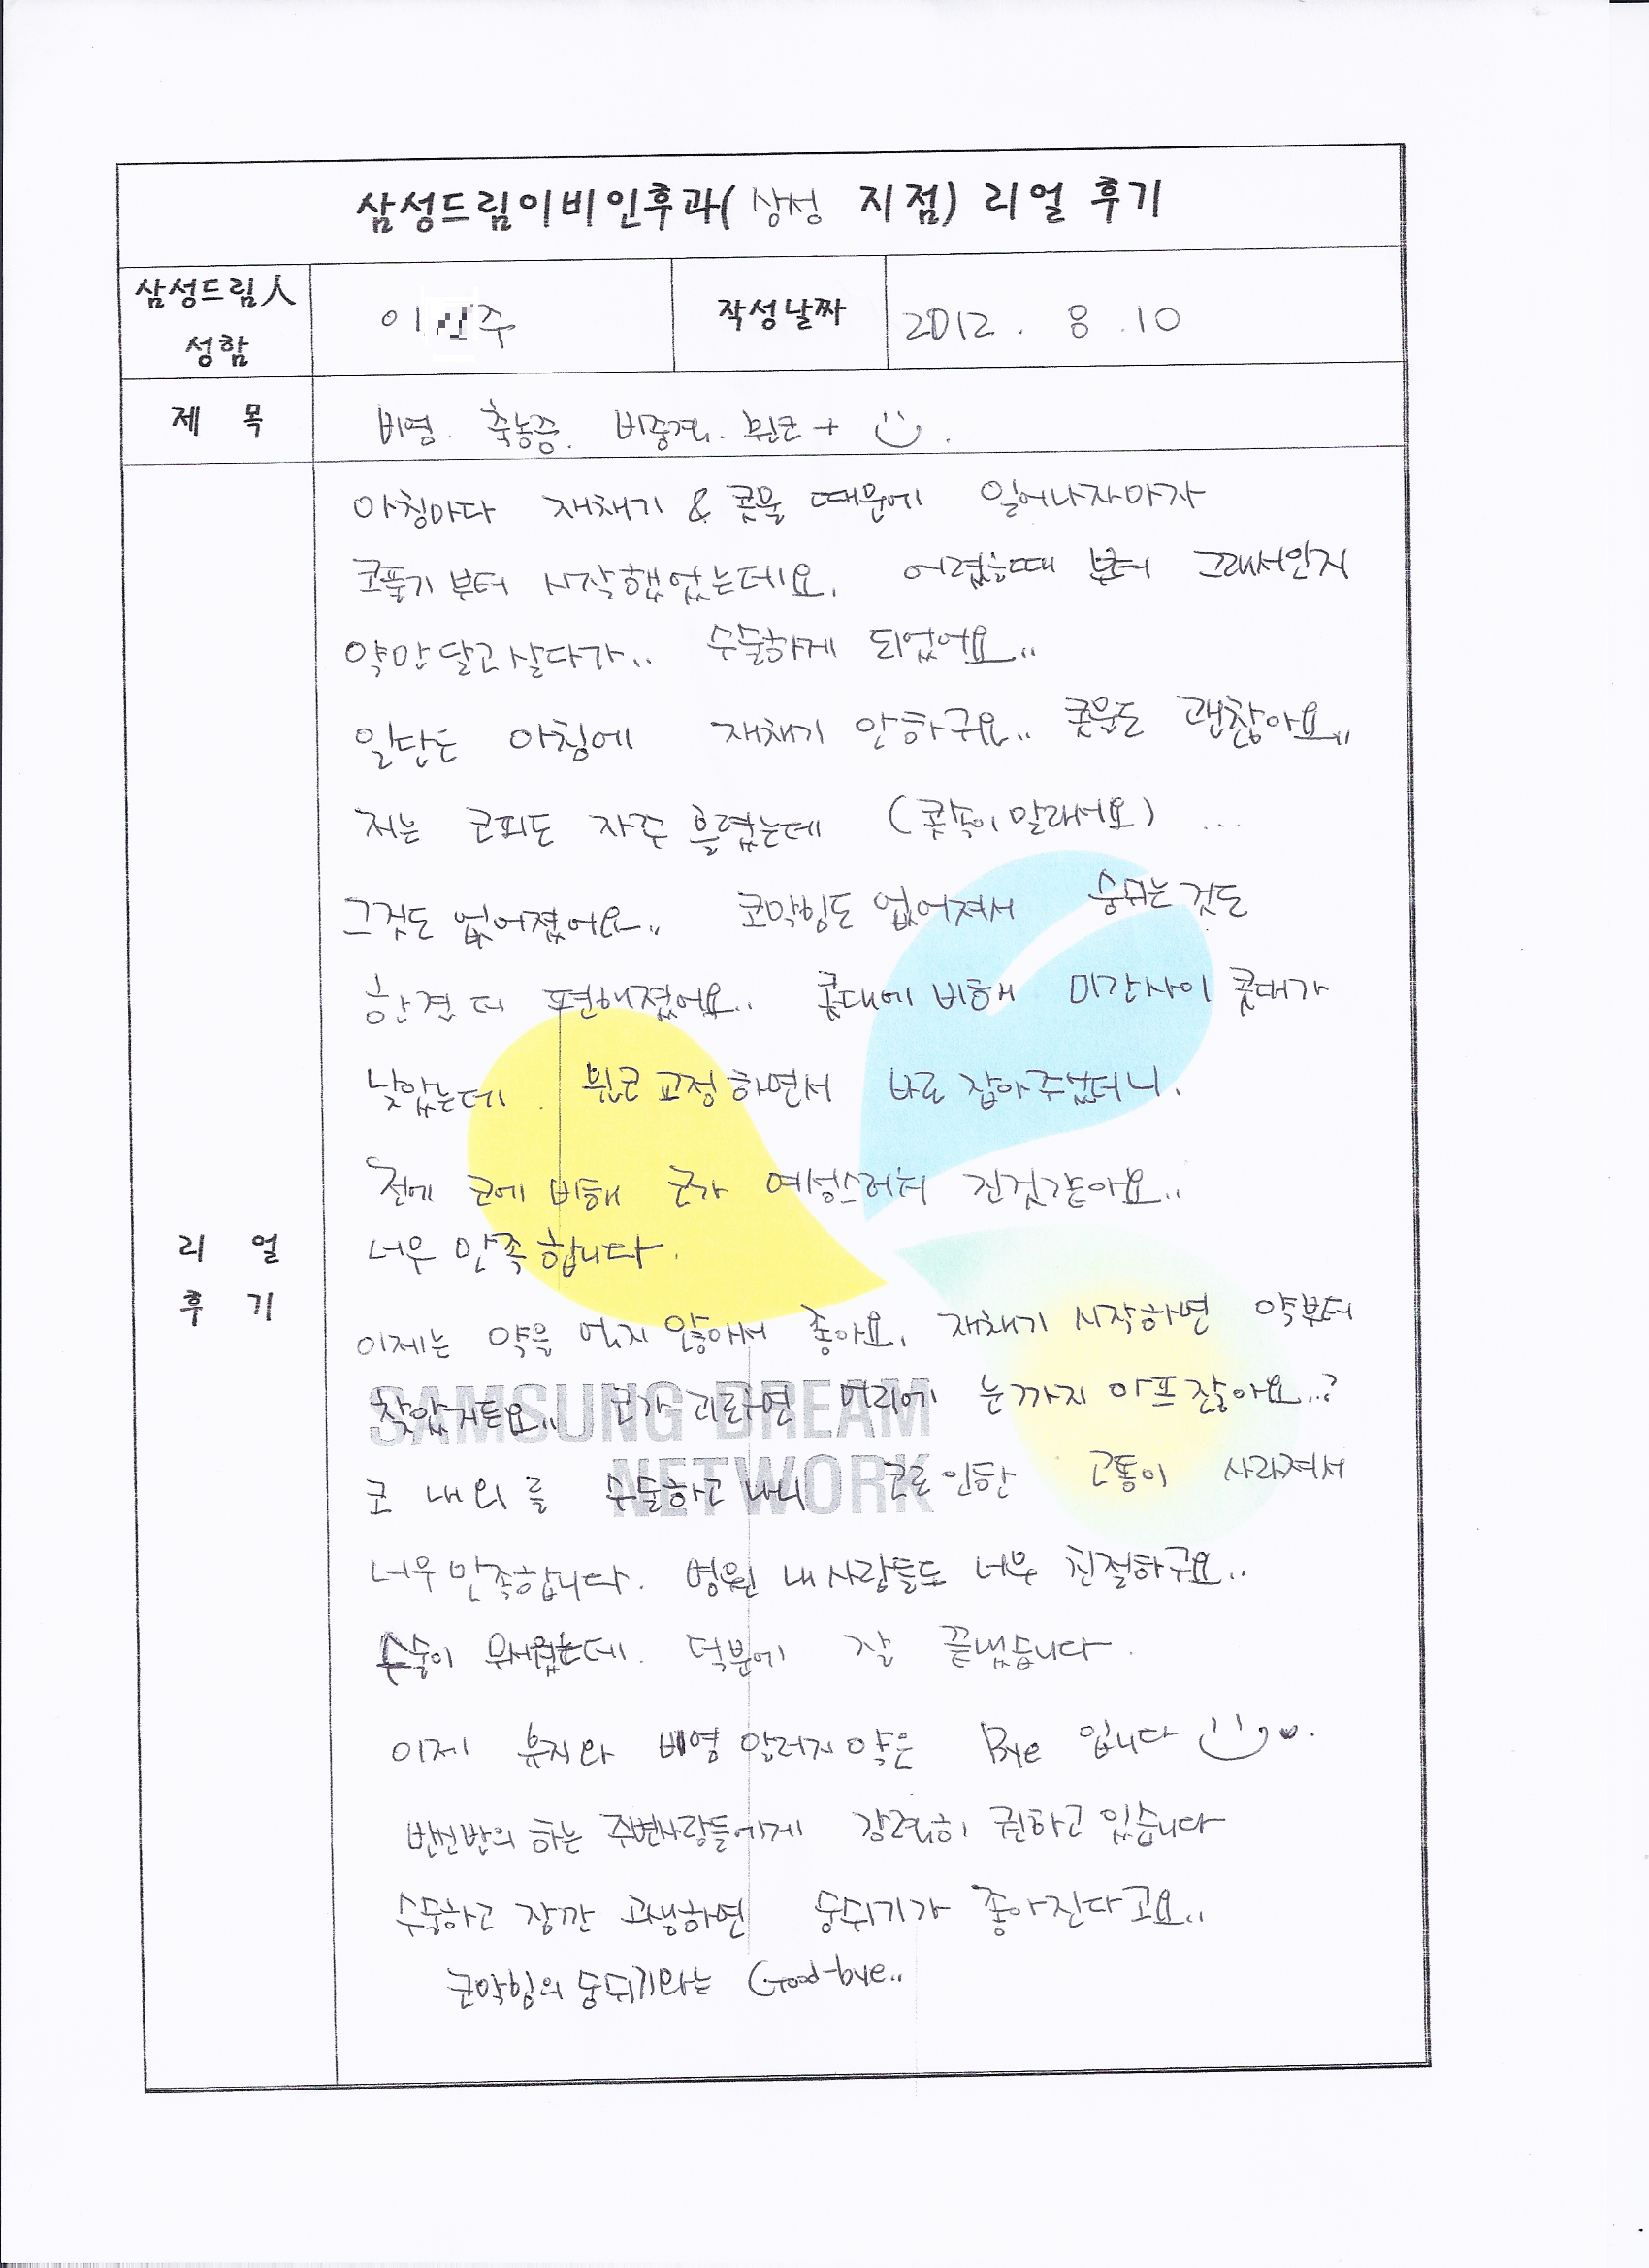 삼성드림이비인후과( 삼성 지점) 리얼 후기
삼성드림人 성함
이 주
작성날짜
2012. 8.10
제 목
비염. 축농증. 비중격. 휜코 +
아침마다 재채기 & 콧물 때문에 일어나자마자
코풀기 부터 시작했었는데요. 어렸을때 부터 그래서인지
약만 달고 살다가.. 수술하게 되었어요..
일단은 아침에 재채기 안하구요.. 콧물도 괜찮아요..
저는 코피도 자주 흘렸는데 (콧속이 말라서요) ...
그것도 없어졌어요.. 코막힘도 없어져서 숨쉬는 것도
한결 더 편해졌어요.. 콧대에 비해 미간사이 콧대가
낮았는데. 휜코 교정 하면서 바로 잡아주셨더니.
전에 코에 비해 코가 여성스러워 진것같아요..
너무 만족 합니다.
이제는 약을 먹지 않아서 좋아요. 재채기 시작하면 약부터
찾았거든요.. 코가 괴로우면 머리에 눈까지 아프잖아요..?
코 내외를 수술하고 나니 코로 인한 고통이 사라져서
너무 만족합니다. 병원 내 사람들도 너무 친절하구요..
수술이 무서웠는데. 덕분에 잘 끝냈습니다.
이제 휴지와 비염 알러지약은 Bye 입니다
반신반의 하는 주변사람들에게 강력히 권하고 있습니다
수술하고 잠깐 고생하면 숨쉬기가 좋아진다고요..
코막힘의 숨쉬기와는 Good-bye..
리 얼
후 기
SAMSUNG DREAM
NETWORK